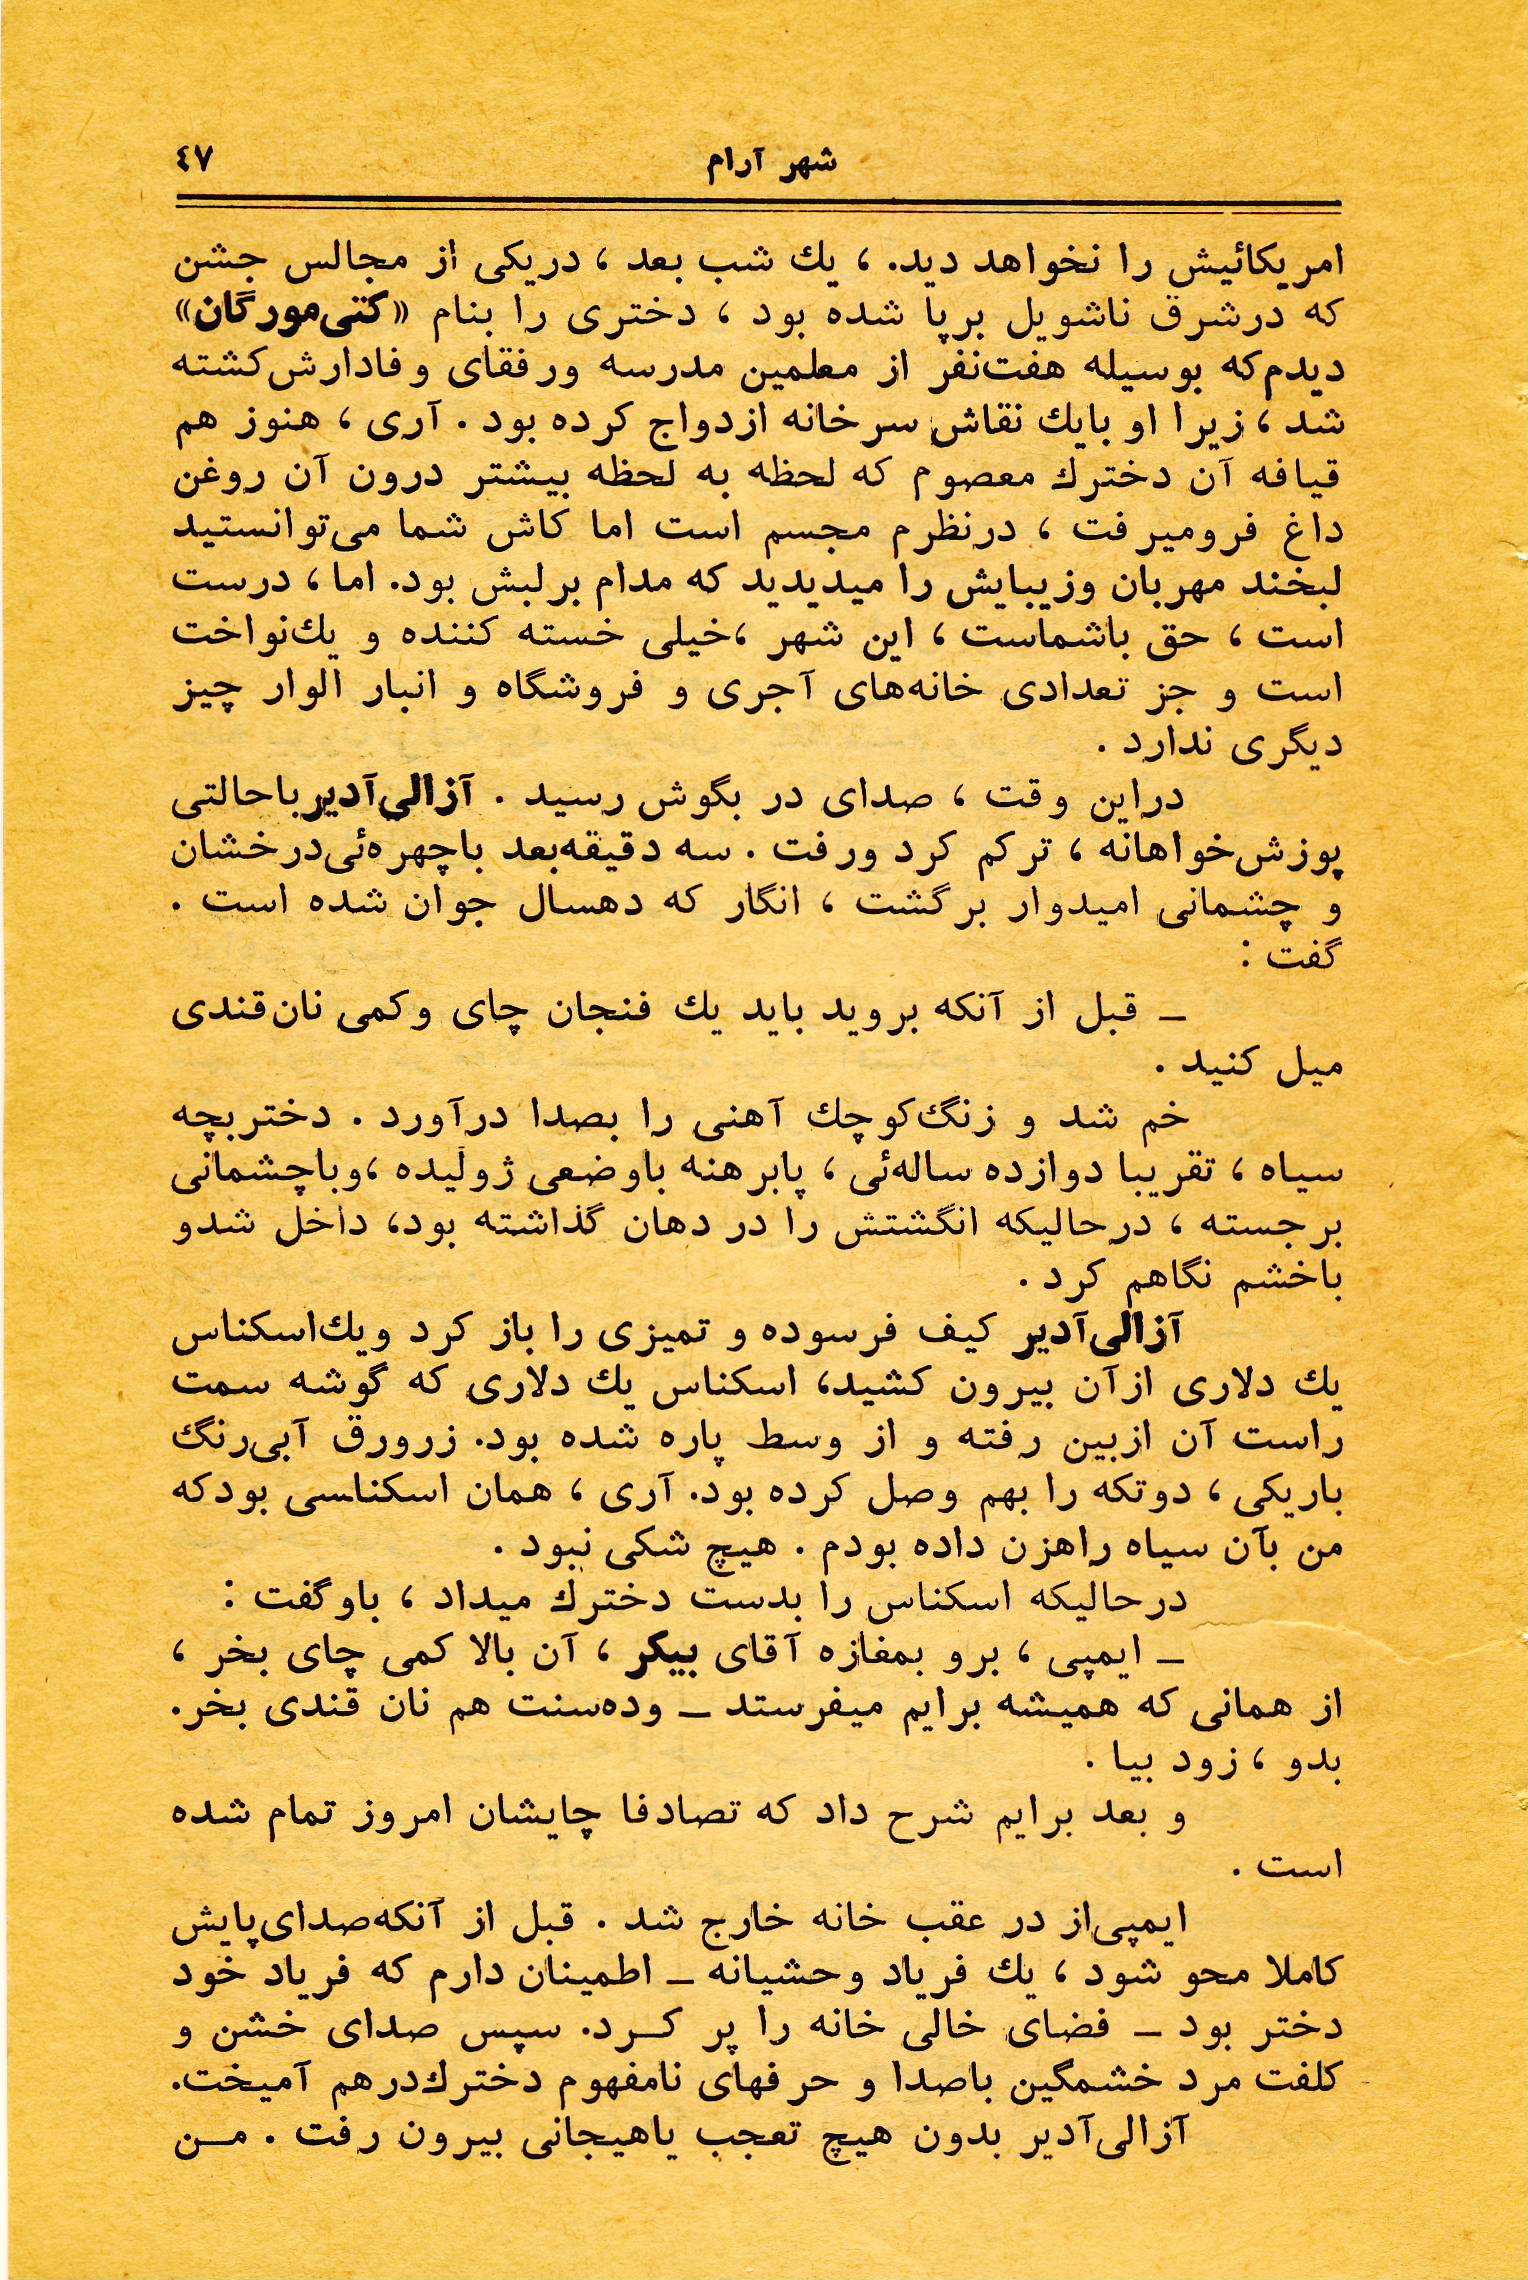 شهر آرام
٤٧
امریکائیش را نخواهد دید. ، یك شب بعد ، دریکی از مجالس جشن
که درشرق ناشویل برپا شده بود ، دختری را بنام «کتی‌مورگان»
دیدم‌که بوسیله هفت‌نفر از معلمین مدرسه ورفقای وفادارش‌کشته
شد ، زیرا او بایك نقاش سرخانه ازدواج کرده بود . آری ، هنوز هم
قیافه آن دخترك معصوم که لحظه به لحظه بیشتر درون آن روغن
داغ فرومیرفت ، درنظرم مجسم است اما کاش شما می‌توانستید
لبخند مهربان وزیبایش را میدیدید که مدام برلبش بود. اما ، درست
است ، حق باشماست ، این شهر ،خیلی خسته کننده و یك‌نواخت
است و جز تعدادی خانه‌های آجری و فروشگاه و انبار الوار چیز
دیگری ندارد .
دراین وقت ، صدای در بگوش رسید . آزالی‌آدیرباحالتی
پوزش‌خواهانه ، ترکم کرد ورفت . سه دقیقه‌بعد باچهره‌ئی‌درخشان
و چشمانی امیدوار برگشت ، انگار که دهسال جوان شده است .
گفت :
ـ قبل از آنکه بروید باید یك فنجان چای وکمی نان‌قندی
میل کنید .
خم شد و زنگ‌کوچك آهنی را بصدا درآورد . دختربچه
سیاه ، تقریبا دوازده ساله‌ئی ، پابرهنه باوضعی ژولیده ،وباچشمانی
برجسته ، درحالیکه انگشتش را در دهان گذاشته بود، داخل شدو
باخشم نگاهم کرد .
آزالی‌آدیر کیف فرسوده و تمیزی را باز کرد ویك‌اسکناس
یك دلاری ازآن بیرون کشید، اسکناس یك دلاری که گوشه سمت
راست آن ازبین رفته و از وسط پاره شده بود. زرورق آبی‌رنگ
باریکی ، دوتکه را بهم وصل کرده بود. آری ، همان اسکناسی بودکه
من بآن سیاه راهزن داده بودم . هیچ شکی نبود .
درحالیکه اسکناس را بدست دخترك میداد ، باوگفت :
ـ ایمپی ، برو بمغازه آقای بیکر ، آن بالا کمی چای بخر ،
از همانی که همیشه برایم میفرستد ـ وده‌سنت هم نان قندی بخر.
بدو ، زود بیا .
و بعد برایم شرح داد که تصادفا چایشان امروز تمام شده
است .
ایمپی‌از در عقب خانه خارج شد . قبل از آنکه‌صدای‌پایش
کاملا محو شود ، یك فریاد وحشیانه ـ اطمینان دارم که فریاد خود
دختر بود ـ فضای خالی خانه را پر کـرد. سپس صدای خشن و
کلفت مرد خشمگین باصدا و حرفهای نامفهوم دخترك‌درهم آمیخت.
آزالی‌آدیر بدون هیچ تعجب یاهیجانی بیرون رفت . مـن